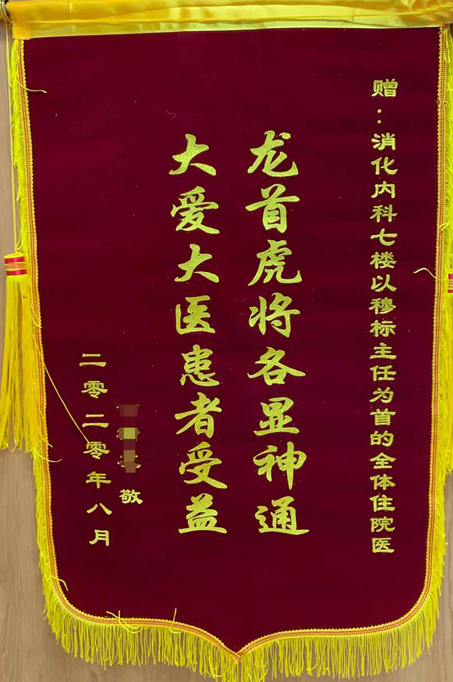 赠：消化内科七楼以穆标主任为首的全体住院医
龙首虎将各显神通
大爱大医患者受益
敬
二零二零年八月